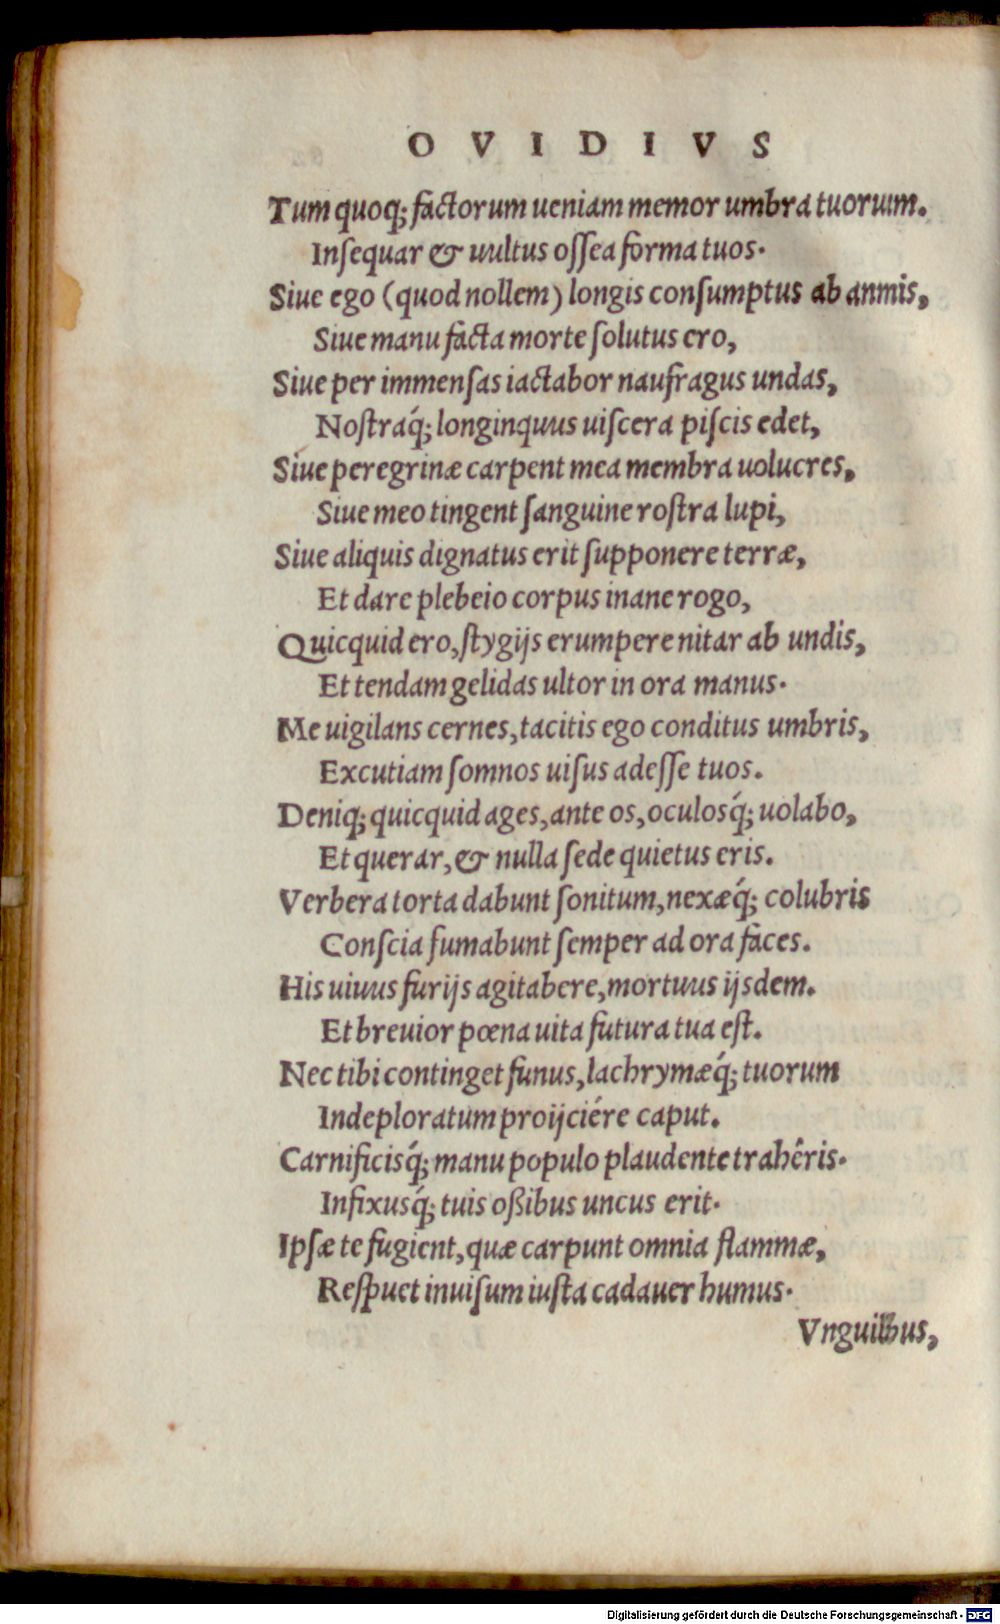 OVIDIVS
Tum quoq; factorum ueniam memor umbra tuorum.
Insequar & uultus ossea forma tuos.
Siue ego (quod nollem) longis consumptus ab anmis,
Siue manu facta morte solutus ero,
Siue per immensas iactabor naufragus undas,
Nostraq́; longinquus uiscera piscis edet,
Siue peregrinæ carpent mea membra uolucres,
Siue meo tingent sanguine rostra lupi,
Siue aliquis dignatus erit supponere terræ,
Et dare plebeio corpus inane rogo,
Quicquid ero, stygijs erumpere nitar ab undis,
Et tendam gelidas ultor in ora manus.
Me uigilans cernes, tacitis ego conditus umbris,
Excutiam somnos uisus adesse tuos.
Deniq; quicquid ages, ante os, oculosq́; uolabo,
Et querar, & nulla sede quietus eris.
Verbera torta dabunt sonitum, nexæq́; colubris
Conscia fumabunt semper ad ora faces.
His uiuus furijs agitabere, mortuus ijsdem.
Et breuior pœna uita futura tua est.
Nec tibi continget funus, lachrymæq́; tuorum
Indeploratum proijciére caput.
Carnificisq́; manu populo plaudente trahêris.
Infixusq́; tuis oßibus uncus erit.
Ipsæ te fugient, quæ carpunt omnia flammæ,
Respuet inuisum iusta cadauer humus.
Vnguibus,
Digitalisierung gefördert durch die Deutsche Forschungsgemeinschaft - DFG